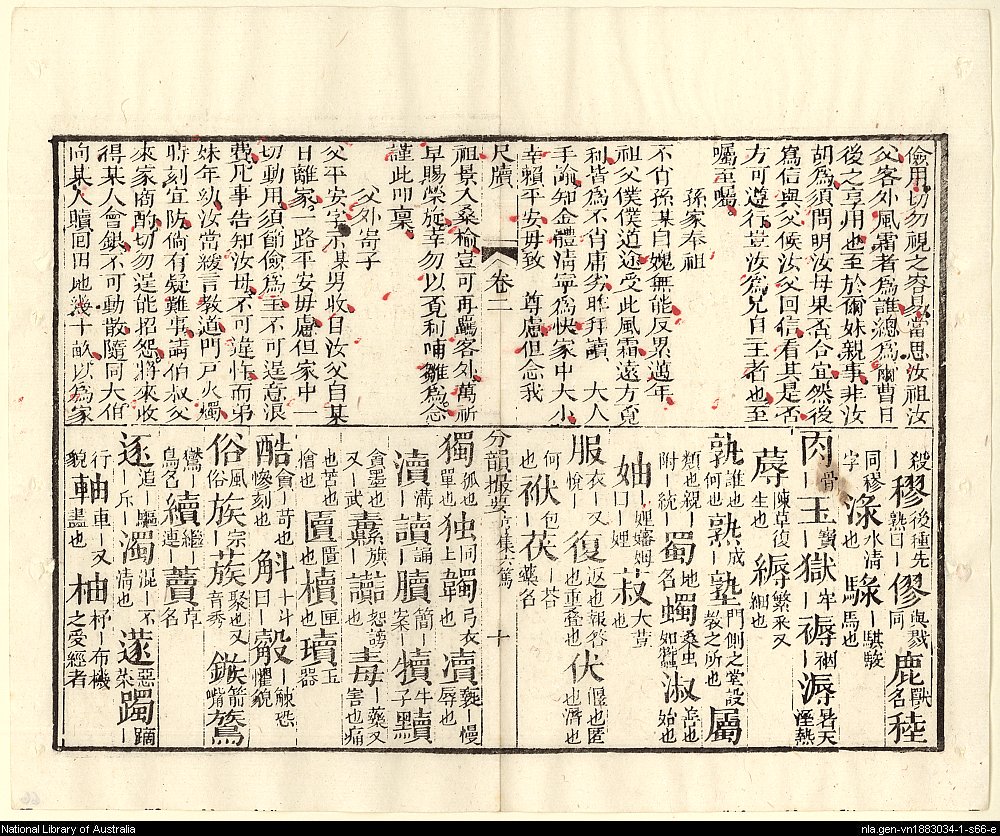 儉用切勿視之容易當思汝祖汝
父客外風霜者為誰總為爾曹日
後之享用也至於爾妹親事非汝
胡為須問明汝母果否合宜然後
寫信與父候汝父回信看其是否
方可遵行豈汝為兄自主者也至
囑至囑
孫家奉祖
不肖孫某自媿無能反累邁年
祖父僕僕道途受此風霜遠方覓
利皆為不肖庸劣昨拜讀 大人
手諭知金體清寧為快家中大小
幸賴平安毋致 尊慮但念我
尺牘 卷二
祖景入桑榆豈可再羈客外萬祈
早賜榮旋幸勿以覓利哺雛為念
謹此叩稟
父外寄子
父平安字示某男收自汝父自某
日離家一路平安毋慮但家中一
切動用須節儉為主不可逞意浪
費凡事告知汝母不可違忤而弟
妹年幼汝當緩言教道門戸火燭
時刻宜防倘有疑難事請伯叔父
來家商酌切勿逞能招怨將來收
得某人會銀不可動散隨同大伯
向某人贖回田地幾十畝以為家
殺 穋後種先熟曰| 僇與戮同 鹿獸名 稑
同穋 淥水清 騄|騏駿馬也
字也
肉骨| 玉寶| 獄牢| 褥裀| 溽暑天溼熱
蓐陳草復生也 縟繁采又細也
孰誰也何也 熟成| 塾門側之堂設教之所也 屬
類也親|附|統| 蜀地名 蠋桑虫如蠶 淑善也始也
妯|娌嬸姆曰|娌 菽大荳也
服衣|又悅| 復返也報答也重叠也 伏偃也匿也濟也
何也 袱包| 茯|苓藥名
分韻撮要 十
獨孤也單也 独同上 韣弓衣 凟褻|慢辱也
瀆溝| 讀誦| 牘簡|案| 犢牛子 黷
貪墨也又|武 纛旗| 讟怨謗也 毒|藥又害也痛
也苦也憎也 匵匱也 櫝匣| 瓄玉器
酷貪|苛也慘刻也 斛十斗曰| 觳|觫恐懼貌
俗風|俗 族宗| 蔟聚也又音秀 鏃箭嘴 鷟
鸑|鳥名 續繼|連| 藚草名
逐追|驅|斥| 濁混|不清也 蓫惡菜 躅躑|
行|貌 軸車|又盡也 柚杼|布機之受經者
National Library of Australia
nla.gen-vn1883034-1-s66-e